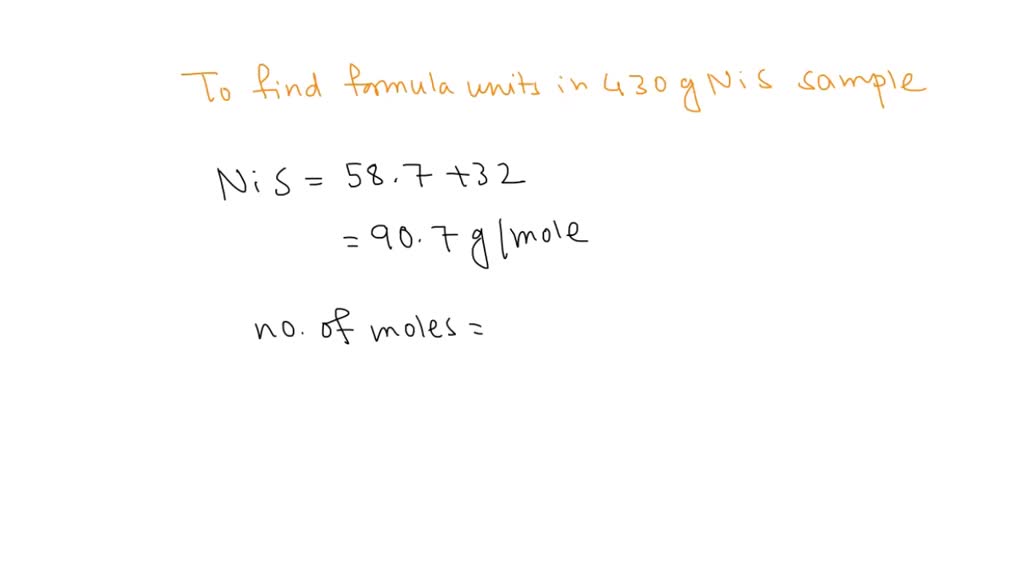 To find formula units in 430 g NiS sample
NiS = 58.7 + 32
= 90.7 g/mole
no. of moles =